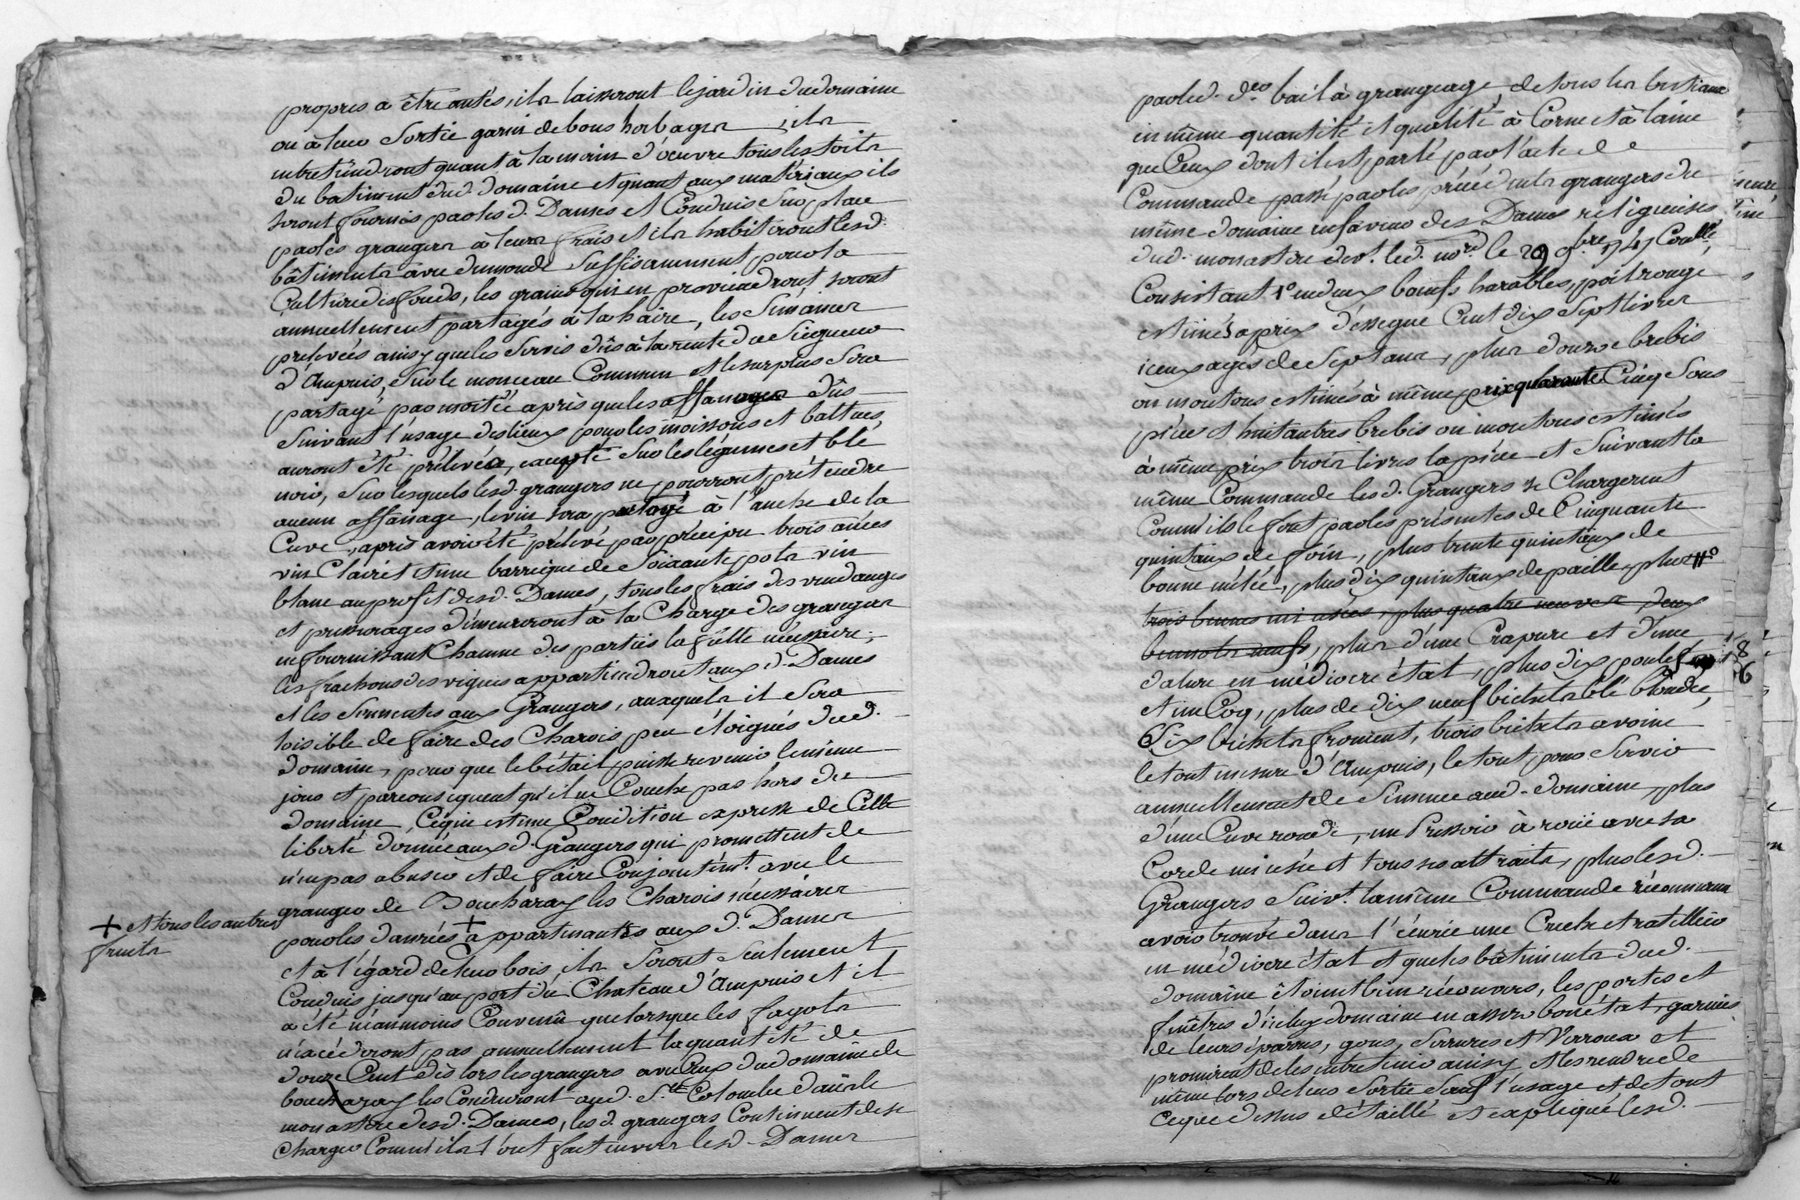 propres a être antés, ils laisseront le jardin du domaine
ou à leur Sortie garni de bons herbages, ils
entretiendront quant à la main d'œuvre tous les toits
du batiment dud. domaine et quant aux matériaux ils
seront fournis par les d. Dames et Conduis Sur place
par les grangers à leurs frais et ils habiteront lesd.
bâtiments avec du monde Suffisamment pour la
Culture des fonds, les grains qui en proviendront seront
annuellement partagés à la haire, les Semances
prélevées ainsy que les Servis dûs à la rente du Seigneur
d'Ampuis, Sur le monceau Commun et le surplus Sera
partagé par moitié après que les affanages dûs
Suivant l'usage des lieux pour les moissons et battues
auront été prélevés, excepté Sur les légumes et blé
noir, Sur lesquels lesd. grangers ne pourront prétendre
aucun affanage, le vin sera partagé à l'anche de la
Cuve, après avoir été prélevé par préciput trois anées
vin Clairet et une barrique de Soixante pots vin
blanc au profit desd. Dames, tous les frais des vendanges
et pressurages demeureront à la Charge des grangers
en fournissant Chacune des parties la futte nécessaire,
les frachons des vignes appartiendront aux d. Dames
et les Sermentes aux Grangers, auxquels il Sera
loisible de faire des Charois peu éloignés dud.
domaine, pour que le bétail puisse revenir le même
jour et par conséquent qu'il ne Couche pas hors du
domaine, Ce qui est une Condition expresse de Cette
liberté donnée aux d. Grangers qui promettent de
n'en pas abuser et de faire Conjointemt. avec le
granger de Boucharay les Charois nécessaires
+ et tous les autres fruits
pour les danrées + appartenantes aux d. Dames
et à l'égard de leur bois, ils Seront Seulement
Conduis jusqu'au port du Chateau d'Ampuis et il
a été néanmoins Convenû que lorsque les fagots
n'excéderont pas annuellement la quantité de
douze Cent dès lors les grangers avec Ceux du domaine de
boucharay les Conduiront aud. Ste Colombe dans le
monastère desd. Dames, les d. grangers Continuent de se
Charger Comme ils l'ont fait envers lesd. Dames
par led. der. bail à grangeage, de tous les bestiaux
en même quantité et qualité à Corne et à laine
que Ceux dont il est parlé par l'acte de
Commande passé par les précédents grangers du
même domaine en faveur des Dames religieuses
dud. monastère devt. led. nore. le 29 9bre 1747 Conllé,
Consistant 1° en deux bœufs harables, poil rouge
estimés a prix d'essegue Cent dix Sept livres
iceux agés de Sept ans, plus douze brebis
ou moutons estimés à même prix quarante Cinq Sous
pièce et huit autres brebis ou moutons estimés
à même prix trois livres la pièce et Suivant la
même Commande les d. Grangers se Chargerent
Comme ils le font par les présentes de Cinquante
quintaux de foin, plus trente quintaux de
bonne mélée, plus dix quintaux de paille, plus
trois bennes mi usées, plus quatre neuves deux
bennots neufs, plus d'une et d'une
en médiocre état, plus dix poules
et un Coq, plus de dix neuf bichets blé blondée,
Six bichets froment, trois bichets avoine
le tout mesure d'Ampuis, le tout pour Servir
annuellement de Semence aud. domaine, plus
d'une Cuve ronde, un Pressoir à roüe avec sa
Corde mi usée et tous ses attraits, plus lesd.
Grangers Suivt. la même Commande réconnurent
avoir trouvé dans l'écurie une Creche et ratellier
en médiocre état et que les bâtiments dud.
domaine étoient bien récouvers, les portes et
fenêtres d'icelui domaine en assez bon état, garnies
de leurs éparres, gons, Serrures et Verroux et
promirent de les entretenir ainsy et les rendre de
même lors de leur Sortie sauf l'usage et de tout
Ce que dessus détaillé et expliqué lesd.